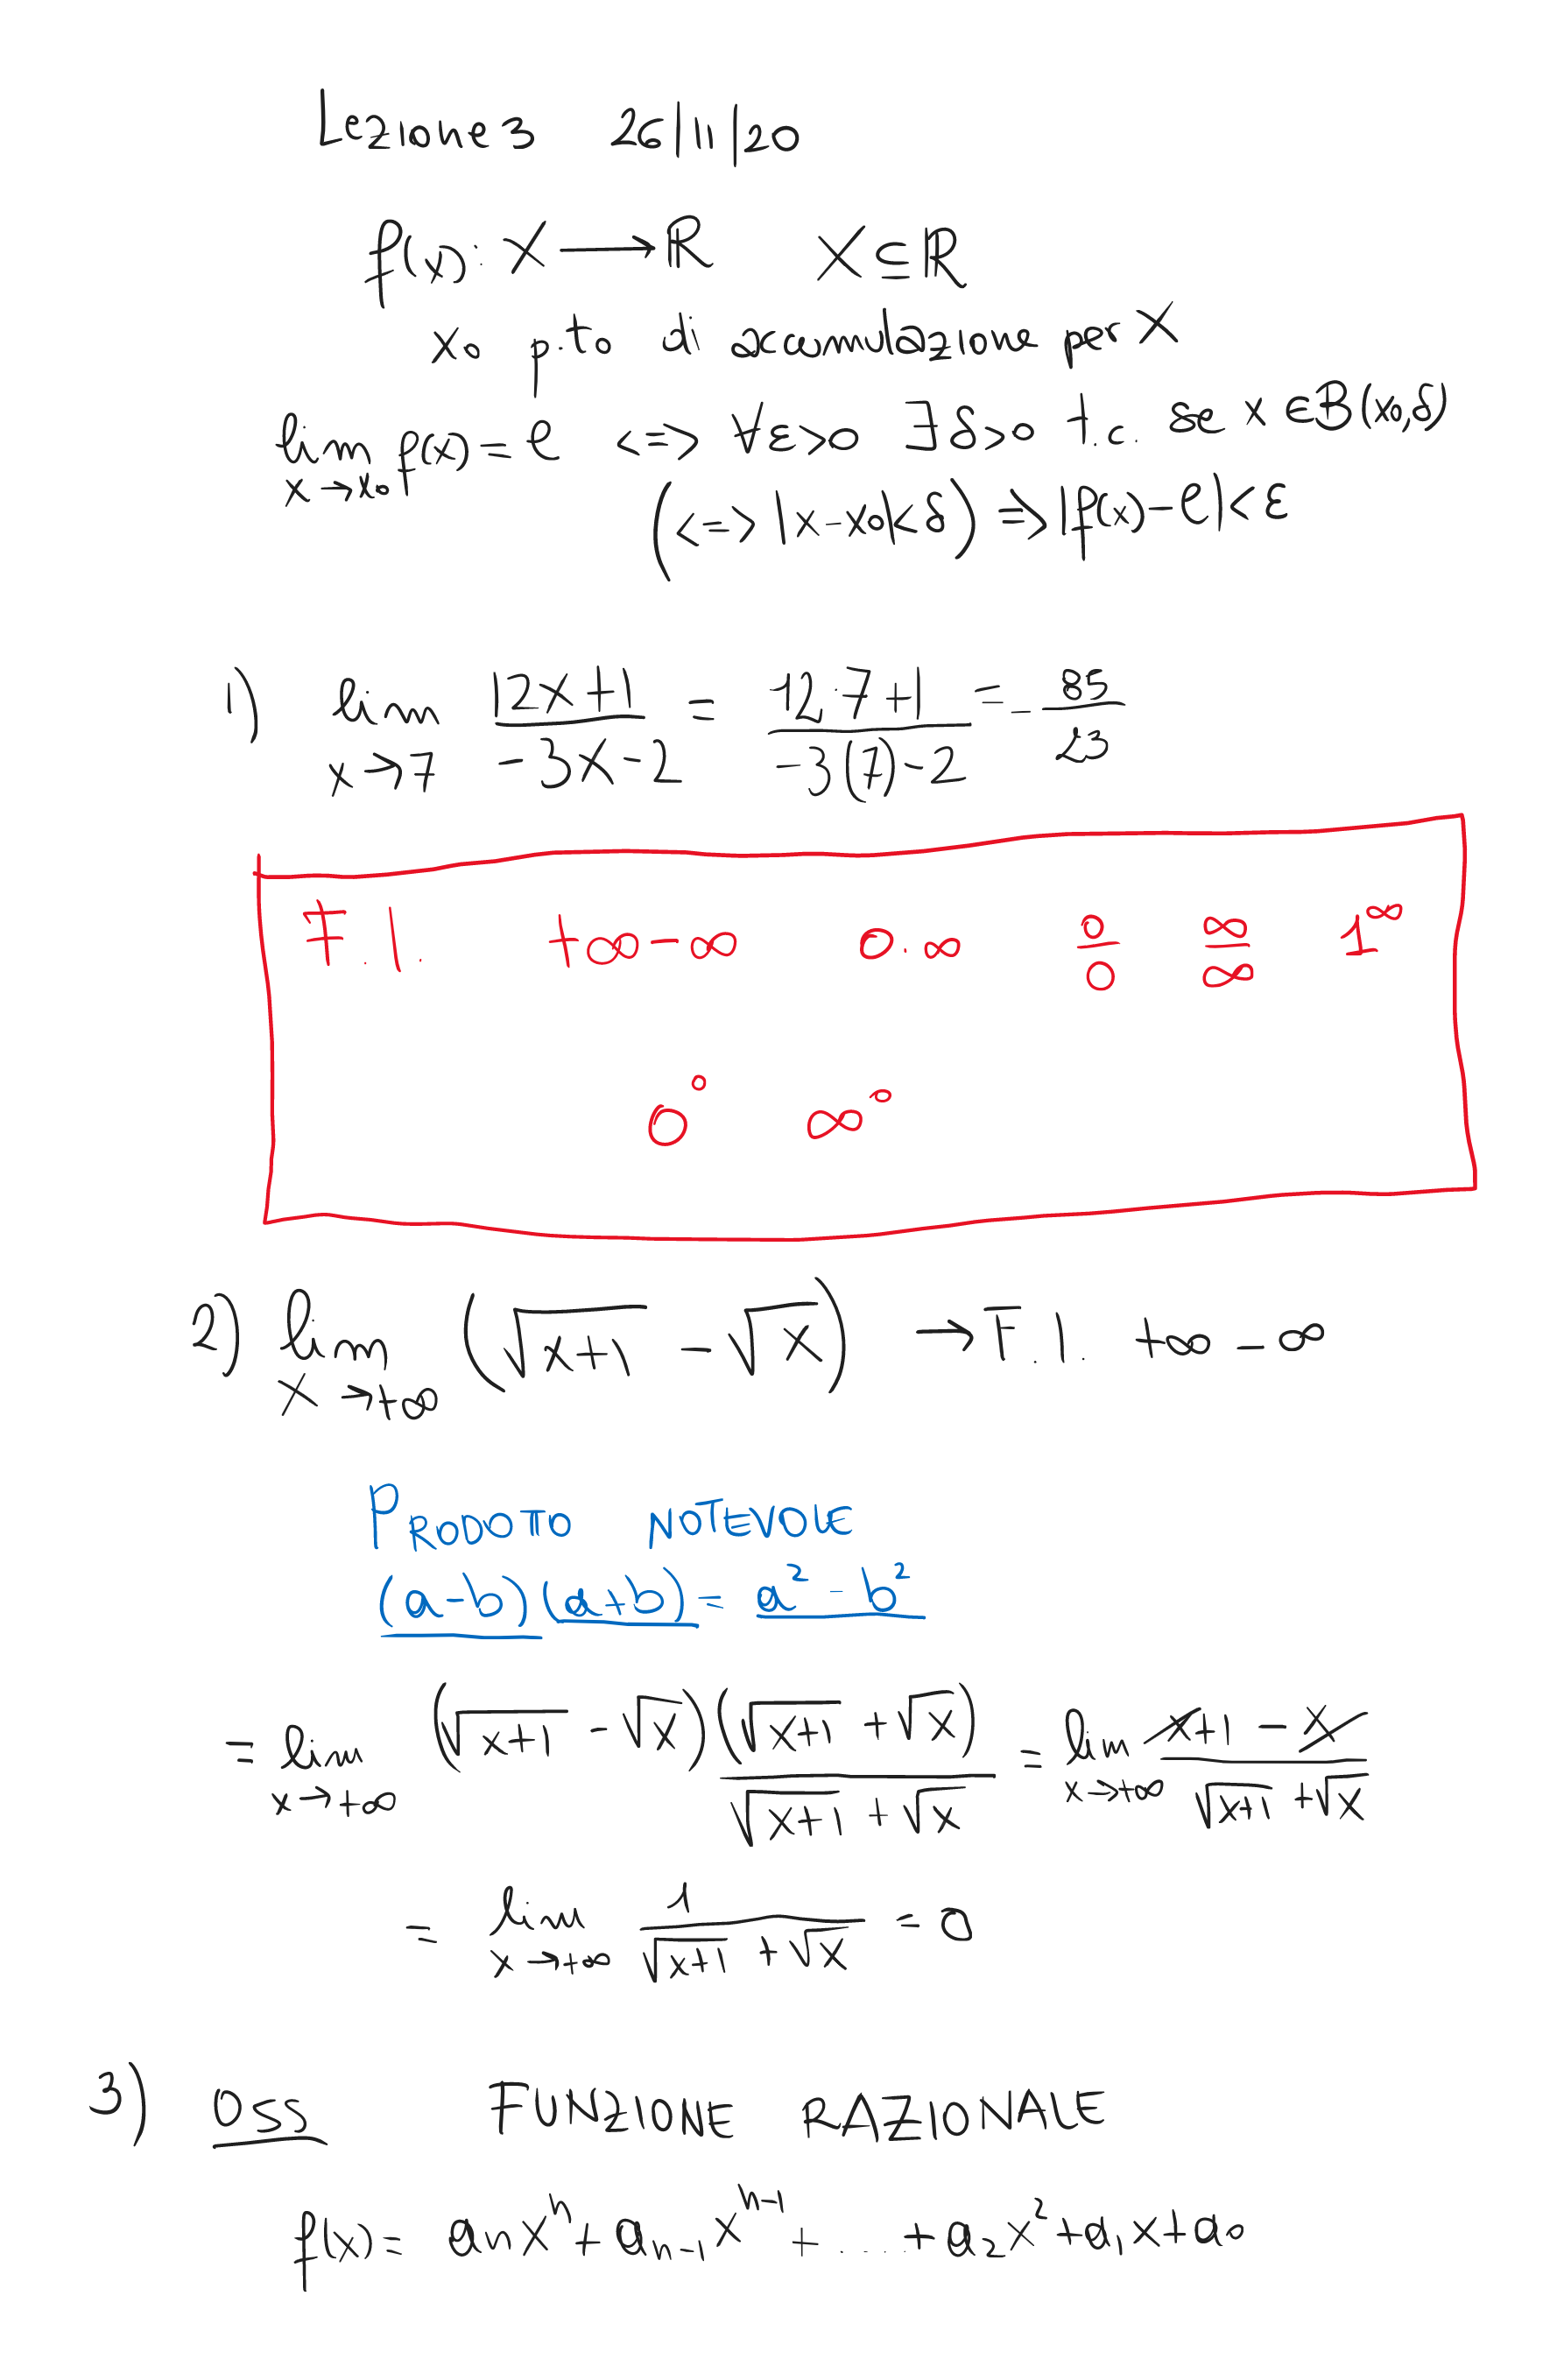 Lezione 3 26/11/20
f(x): X → ℝ X ⊆ ℝ
x₀ p.to di accumulazione per X
lim f(x) = ℓ <=> ∀ε>0 ∃δ>0 t.c. se x ∈ B(x₀,δ)
x→x₀
(<=> |x-x₀|<δ) => |f(x)-ℓ|<ε
1) lim_{x→7} (12x+1)/(-3x-2) = (12·7+1)/(-3(7)-2) = -85/23
F.I. +∞-∞ 0·∞ 0/0 ∞/∞ 1^∞
0^0 ∞^0
2) lim_{x→+∞} (√(x+1) - √x) → F.I. +∞-∞
PRODOTTO NOTEVOLE
(a-b)(a+b) = a² - b²
= lim_{x→+∞} (√(x+1) - √x)(√(x+1) + √x)/(√(x+1) + √x) = lim_{x→+∞} (x+1-x)/(√(x+1) + √x)
= lim_{x→+∞} 1/(√(x+1) + √x) = 0
3) OSS FUNZIONE RAZIONALE
f(x) = aₙxⁿ + aₙ₋₁xⁿ⁻¹ + .... + a₂x² + a₁x + a₀